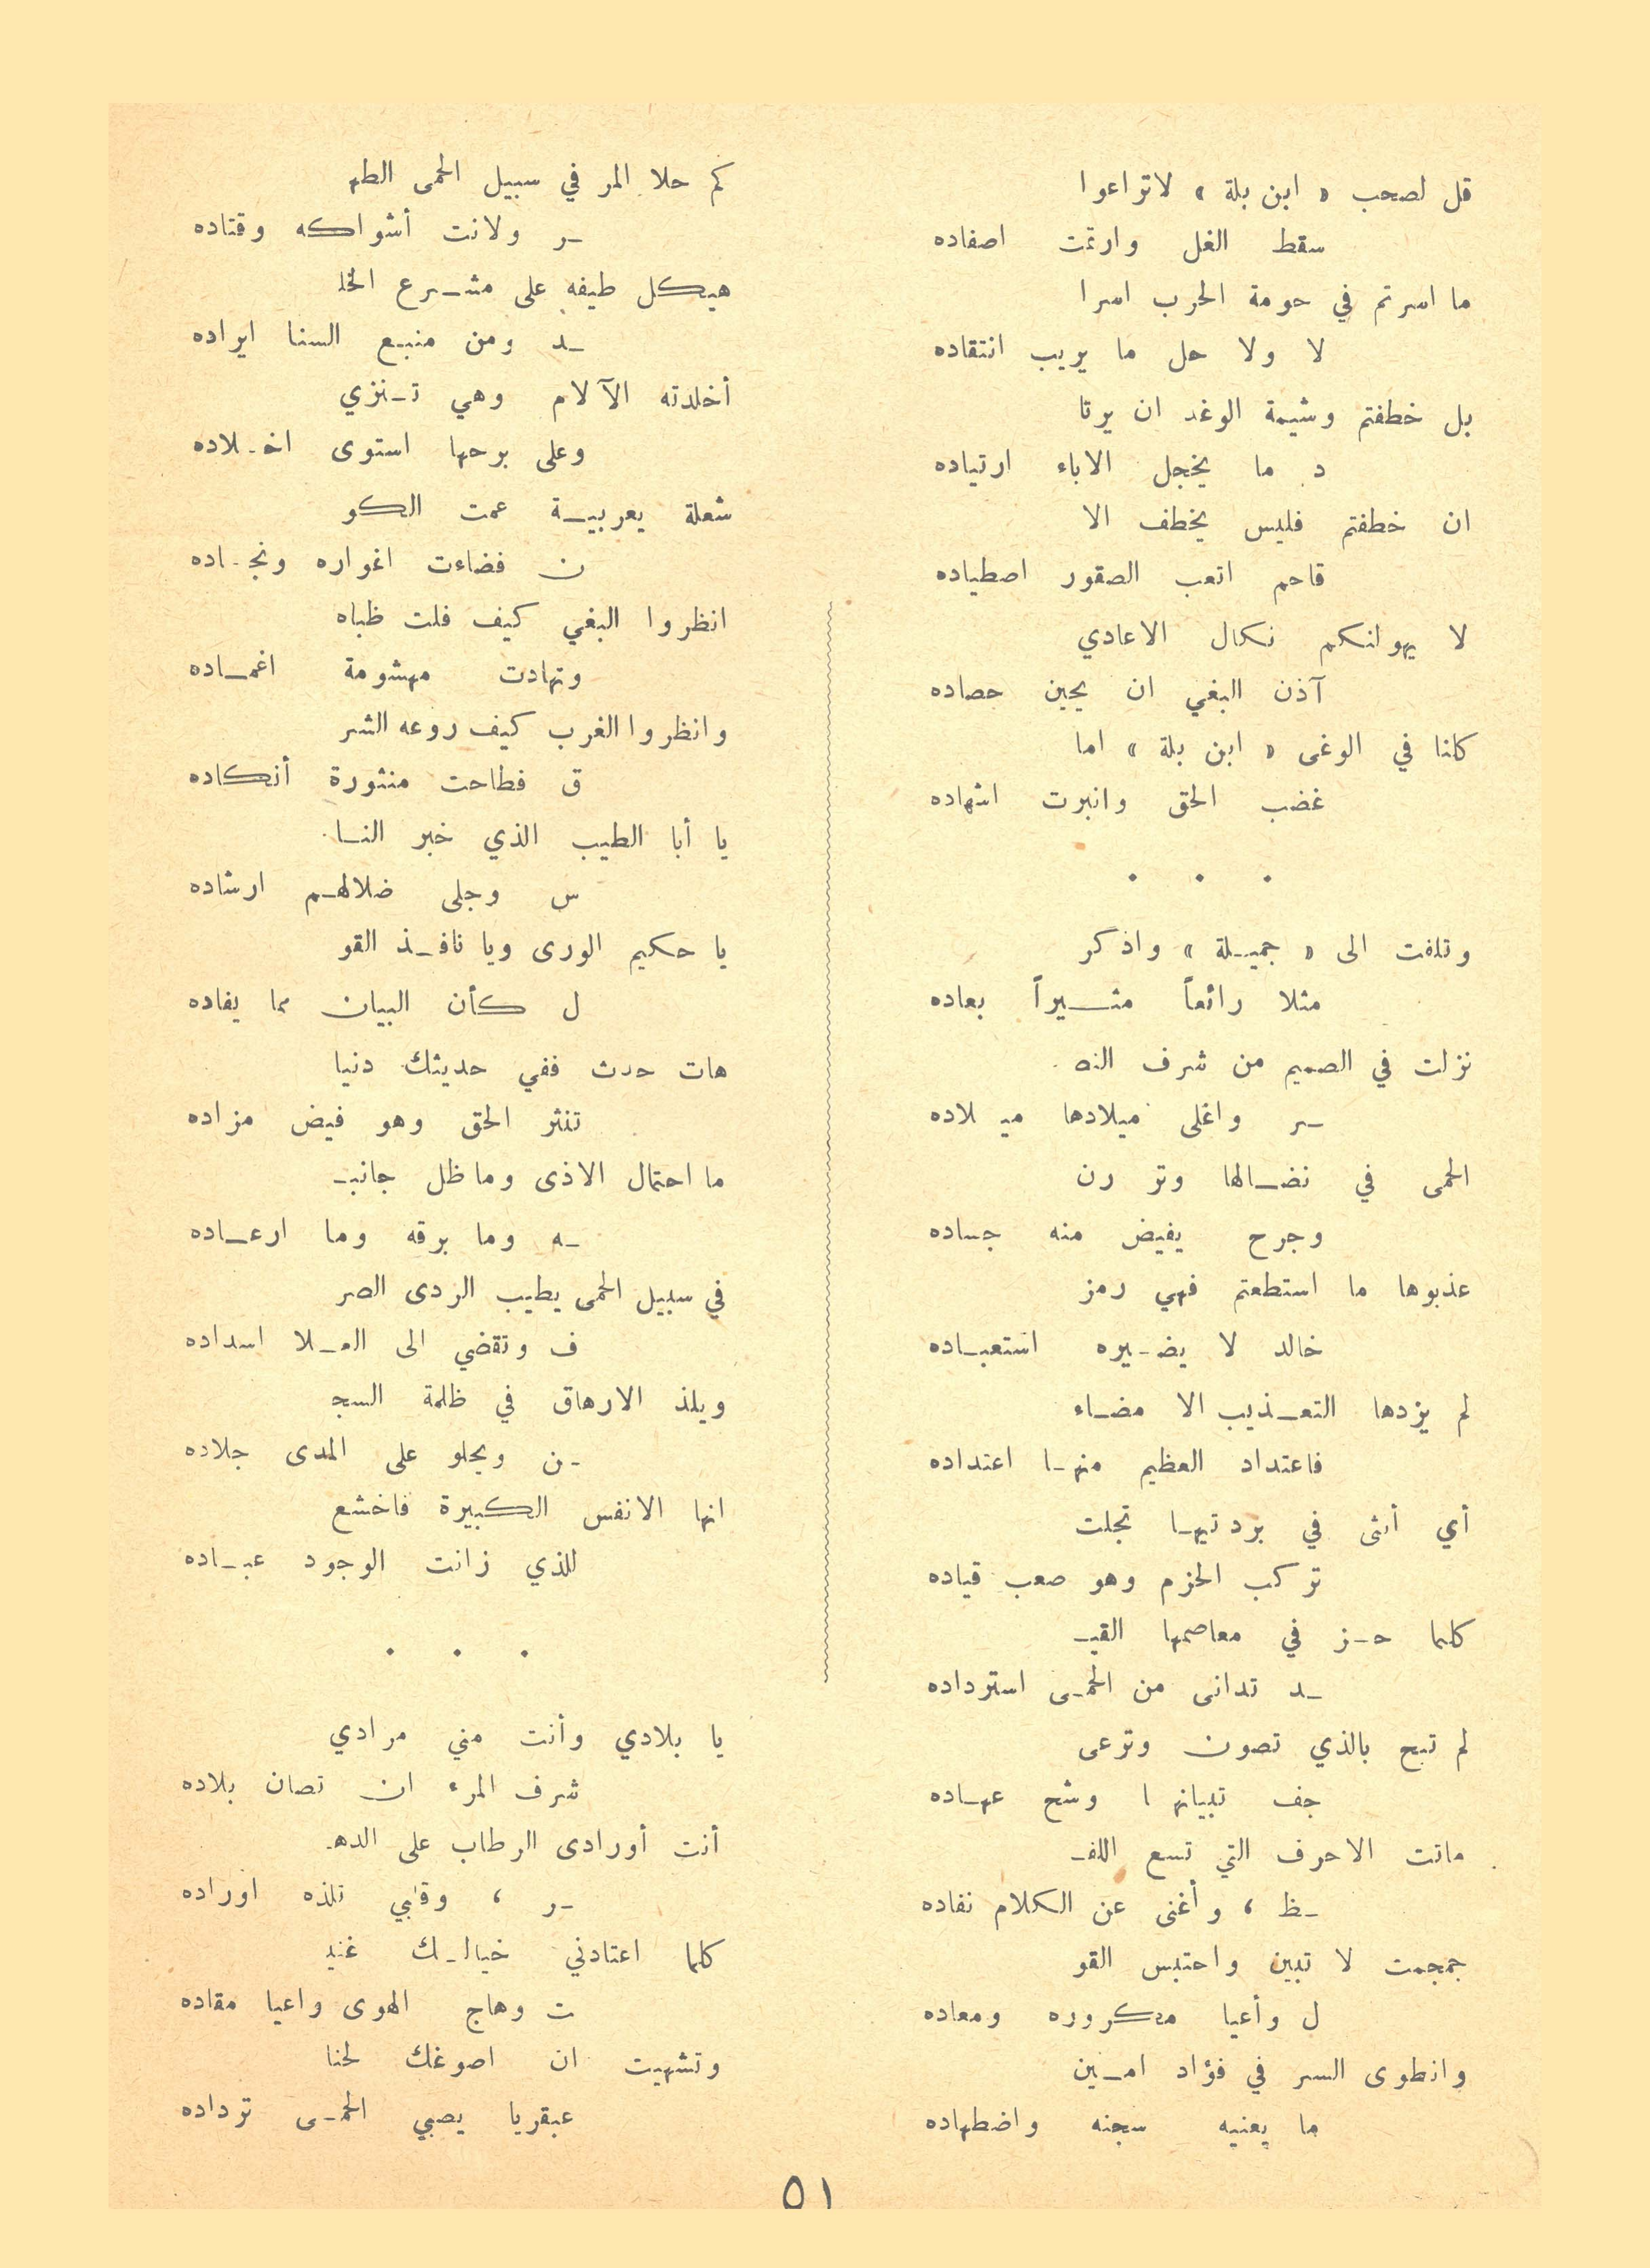 قل لصحب « ابن بلة » لاتراعوا
سقط الغل وارتمت اصفاده
ما اسرتم في حومة الحرب اسرا
لا ولا حل ما يريب انتقاده
بل خطفتم وشيمة الوغد ان يرتا
د ما يخجل الاباء ارتياده
ان خطفتم فليس يخطف الا
قاحم اتعب الصقور اصطياده
لا يهولنكم نكال الاعادي
آذن البغي ان يحين حصاده
كلنا في الوغى « ابن بلة » اما
غضب الحق وانبرت اشهاده
. . .
وتلفت الى « جميلة » واذكر
مثلا رائعاً مثيراً بعاده
نزلت في الصميم من شرف النص
ر واغلى ميلادها ميلاده
الحمى في نضالها وتر رن
وجرح يفيض منه جساده
عذبوها ما استطعتم فهي رمز
خالد لا يضيره استعباده
لم يزدها التعذيب الا مضاء
فاعتداد العظيم منها اعتداده
أي أنثى في بردتيها تجلت
تركب الحزم وهو صعب قياده
كلما حز في معاصمها القيـ
ـد تدانى من الحمى استرداده
لم تبح بالذي تصون وترعى
جف تبيانها وشح عهاده
ماتت الاحرف التي تسع اللفـ
ـظ ، وأغنى عن الكلام نفاده
جمجمت لا تبين واحتبس القو
ل وأعيا مكروره ومعاده
وانطوى السر في فؤاد امين
ما يعنيه سجنه واضطهاده
كم حلا المر في سبيل الحمى الطهـ
ـر ولانت أشواكه وقتاده
هيكل طيفه على مشرع الخلـ
ـد ومن منبع السنا ايراده
أخلدته الآلام وهي تنزي
وعلى برحها استوى اخلاده
شعلة يعربية عمت الكو
ن فضاءت اغواره ونجاده
انظروا البغي كيف فلت ظباه
وتهادت مهشومة اغماده
وانظروا الغرب كيف روعه الشر
ق فطاحت منثورة أنكاده
يا أبا الطيب الذي خبر النا
س وجلى ضلالهم ارشاده
يا حكيم الورى ويا نافذ القو
ل كأن البيان مما يفاده
هات حدث ففي حديثك دنيا
تنثر الحق وهو فيض مزاده
ما احتمال الاذى وماظل جانبـ
ـه وما برقه وما ارعاده
في سبيل الحمى يطيب الردى الصر
ف وتقضي الى العلا اسداده
ويلذ الارهاق في ظلمة السجـ
ـن ويحلو على المدى جلاده
انها الانفس الكبيرة فاخشع
للذي زانت الوجود عباده
. . .
يا بلادي وأنت مني مرادي
شرف المرء ان تصان بلاده
أنت أورادى الرطاب على الدهـ
ـر ، وقلبي تلذه اوراده
كلما اعتادني خيالك غنيـ
ت وهاج الهوى واعيا مقاده
وتشهيت ان اصوغك لحنا
عبقريا يصبي الحمى ترداده
٥١